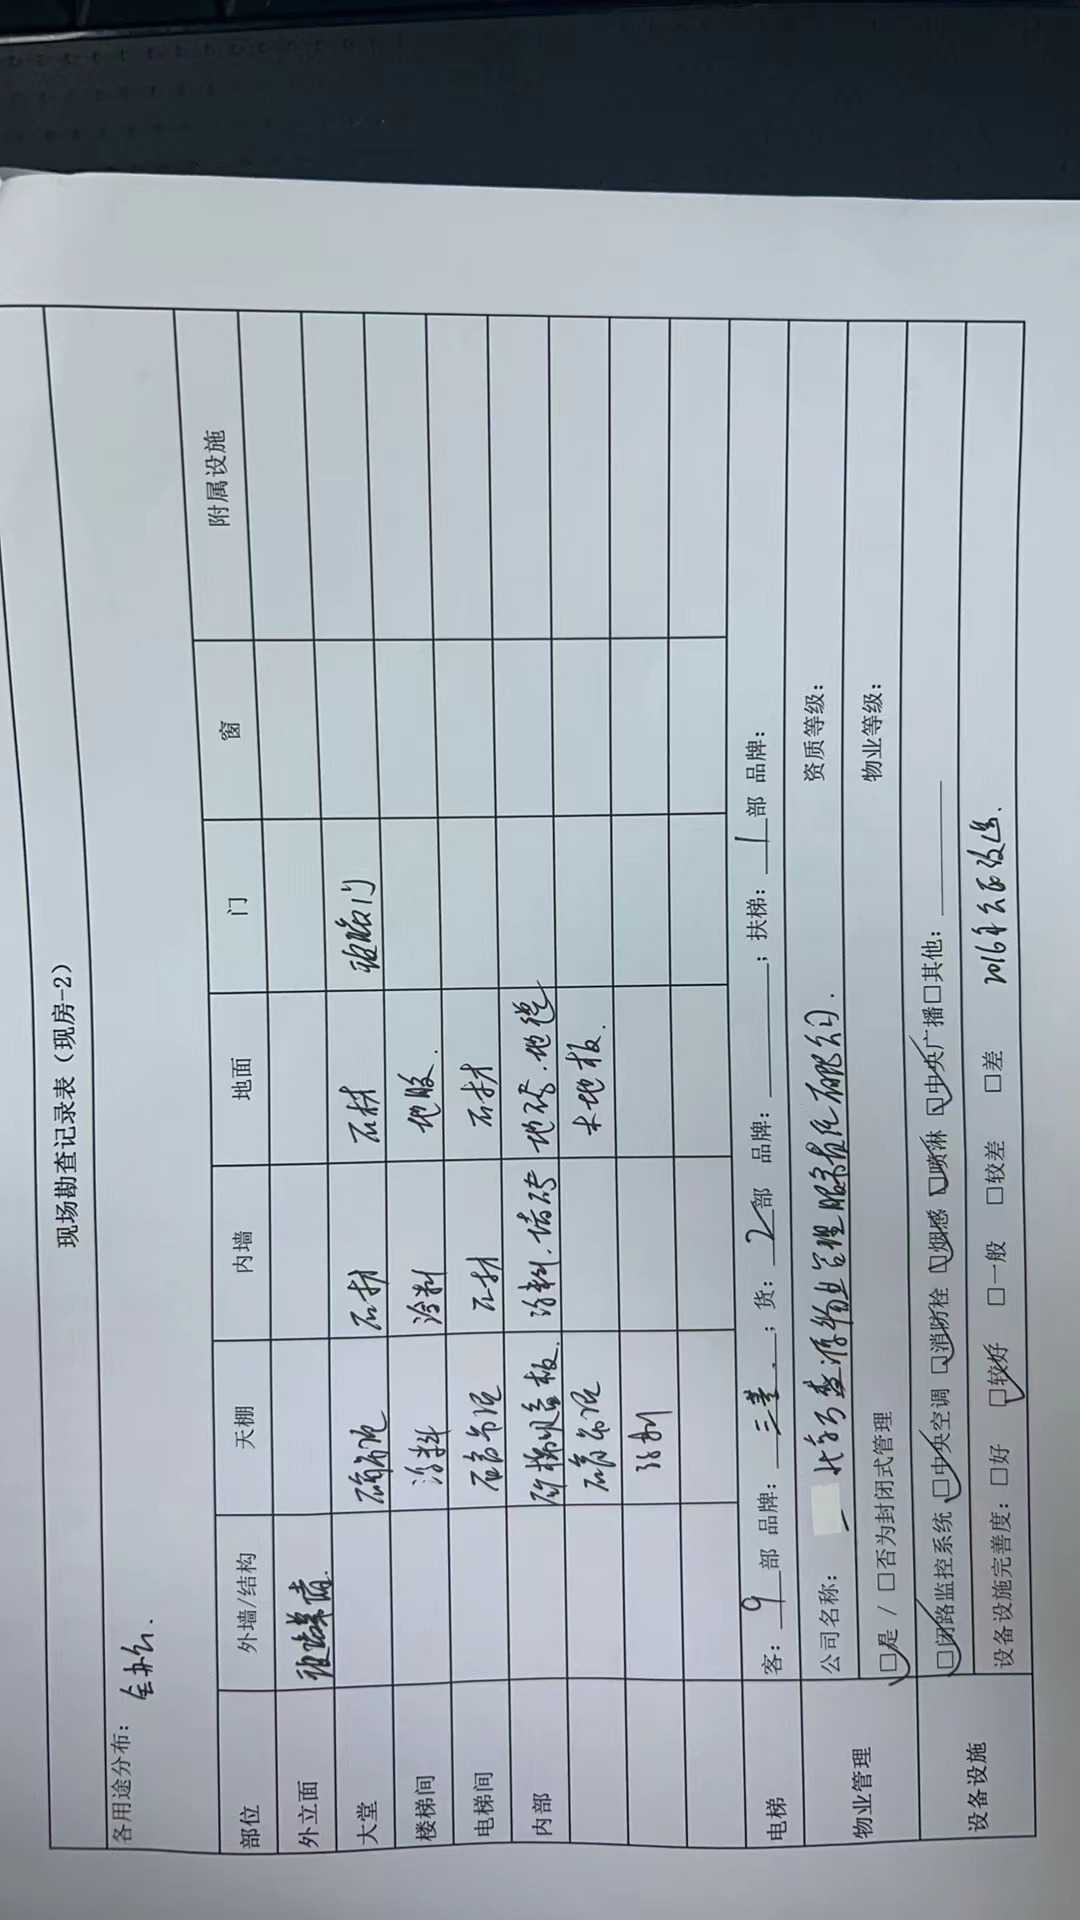 现场勘查记录表（现房-2）
各用途分布： 全办公.
部位 外墙/结构 天棚 内墙 地面 门 窗 附属设施
外立面 玻璃幕墙.
大堂 石膏吊顶 石材 石材 玻璃门
楼梯间 涂料 涂料 地胶.
电梯间 石膏吊顶 石材 石材
内部 矿棉吸音板. 涂料.墙砖 地砖.地毯
石膏吊顶 木地板.
涂料
电梯 客： 9 部 品牌： 三菱. ；货： 2 部 品牌： ；扶梯： 1 部 品牌：
物业管理 公司名称： 物业管理服务有限公司. 资质等级：
□是 / □否为封闭式管理 物业等级：
设备设施 □闭路监控系统 □中央空调 □消防栓 □烟感 □喷淋 □中央广播□其他：
设备设施完善度：□好 □较好 □一般 □较差 □差 2016年 改造.